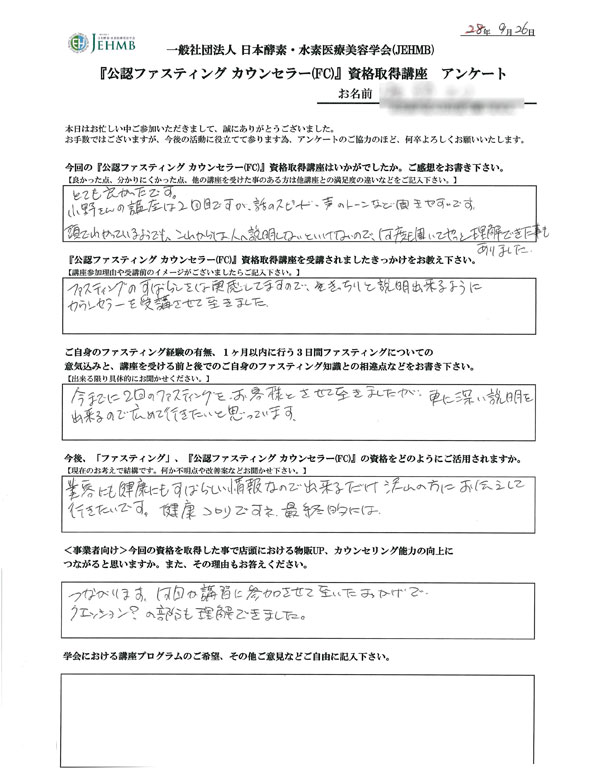 JEHMB
28年 9月26日
一般社団法人 日本酵素・水素医療美容学会(JEHMB)
『公認ファスティング カウンセラー(FC)』資格取得講座 アンケート
お名前
本日はお忙しい中ご参加いただきまして、誠にありがとうございました。
お手数ではございますが、今後の活動に役立てて参ります為、アンケートのご協力のほど、何卒よろしくお願いいたします。
今回の『公認ファスティング カウンセラー(FC)』資格取得講座はいかがでしたか。ご感想をお書き下さい。
【良かった点、分かりにくかった点、他の講座を受けた事のある方は他講座との満足度の違いなどをご記入下さい。】
とても良かったです。
小野さんの講座は2回目ですが、話のスピード、声のトーンなど聞きやすいです。
頭でわかっているようです、これからは人へ説明しないといけないので、何度も聞いてやっと理解できた事も
ありました。
『公認ファスティング カウンセラー(FC)』資格取得講座を受講されましたきっかけをお教え下さい。
【講座参加理由や受講前のイメージがございましたらご記入下さい。】
ファスティングのすばらしさは実感してますので、きっちりと説明出来るように
カウンセラーを受講させて
ご自身のファスティング経験の有無、1ヶ月以内に行う3日間ファスティングについての
意気込みと、講座を受ける前と後でのご自身のファスティング知識との相違点などをお書き下さい。
【出来る限り具体的にお聞かせください。】
今までに2回のファスティングをお客様とさせて きましたが、更に深い説明を
出来るので広めて行きたいと思っています。
今後、「ファスティング」、『公認ファスティング カウンセラー(FC)』の資格をどのようにご活用されますか。
【現在のお考えで結構です。何か不明点や改善案などお聞かせ下さい。】
美容にも健康にもすばらしい情報なので出来るだけ沢山の方にお伝えして
行きたいです。健康コロリですネ、最終的には。
＜事業者向け＞今回の資格を取得した事で店頭における物販UP、カウンセリング能力の向上に
つながると思いますか。また、その理由もお答えください。
つながります。何回か講習に参加させて いたおかげで
クエッション？の部分も理解できました。
学会における講座プログラムのご希望、その他ご意見などご自由に記入下さい。